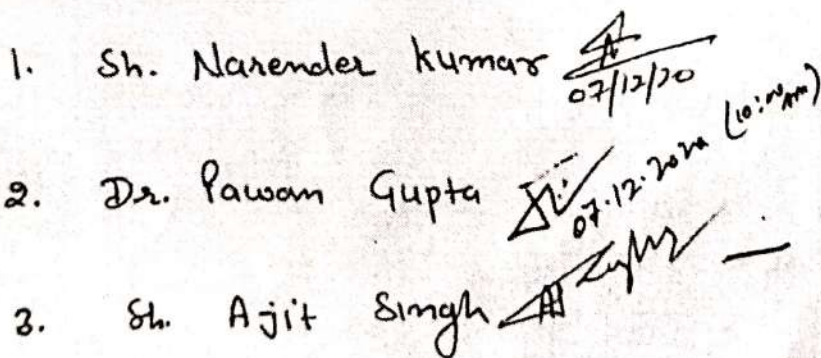 1. Sh. Narender Kumar
07/12/20
2. Dr. Pawan Gupta
07.12.2020 (10:00 AM)
3. Sh. Ajit Singh